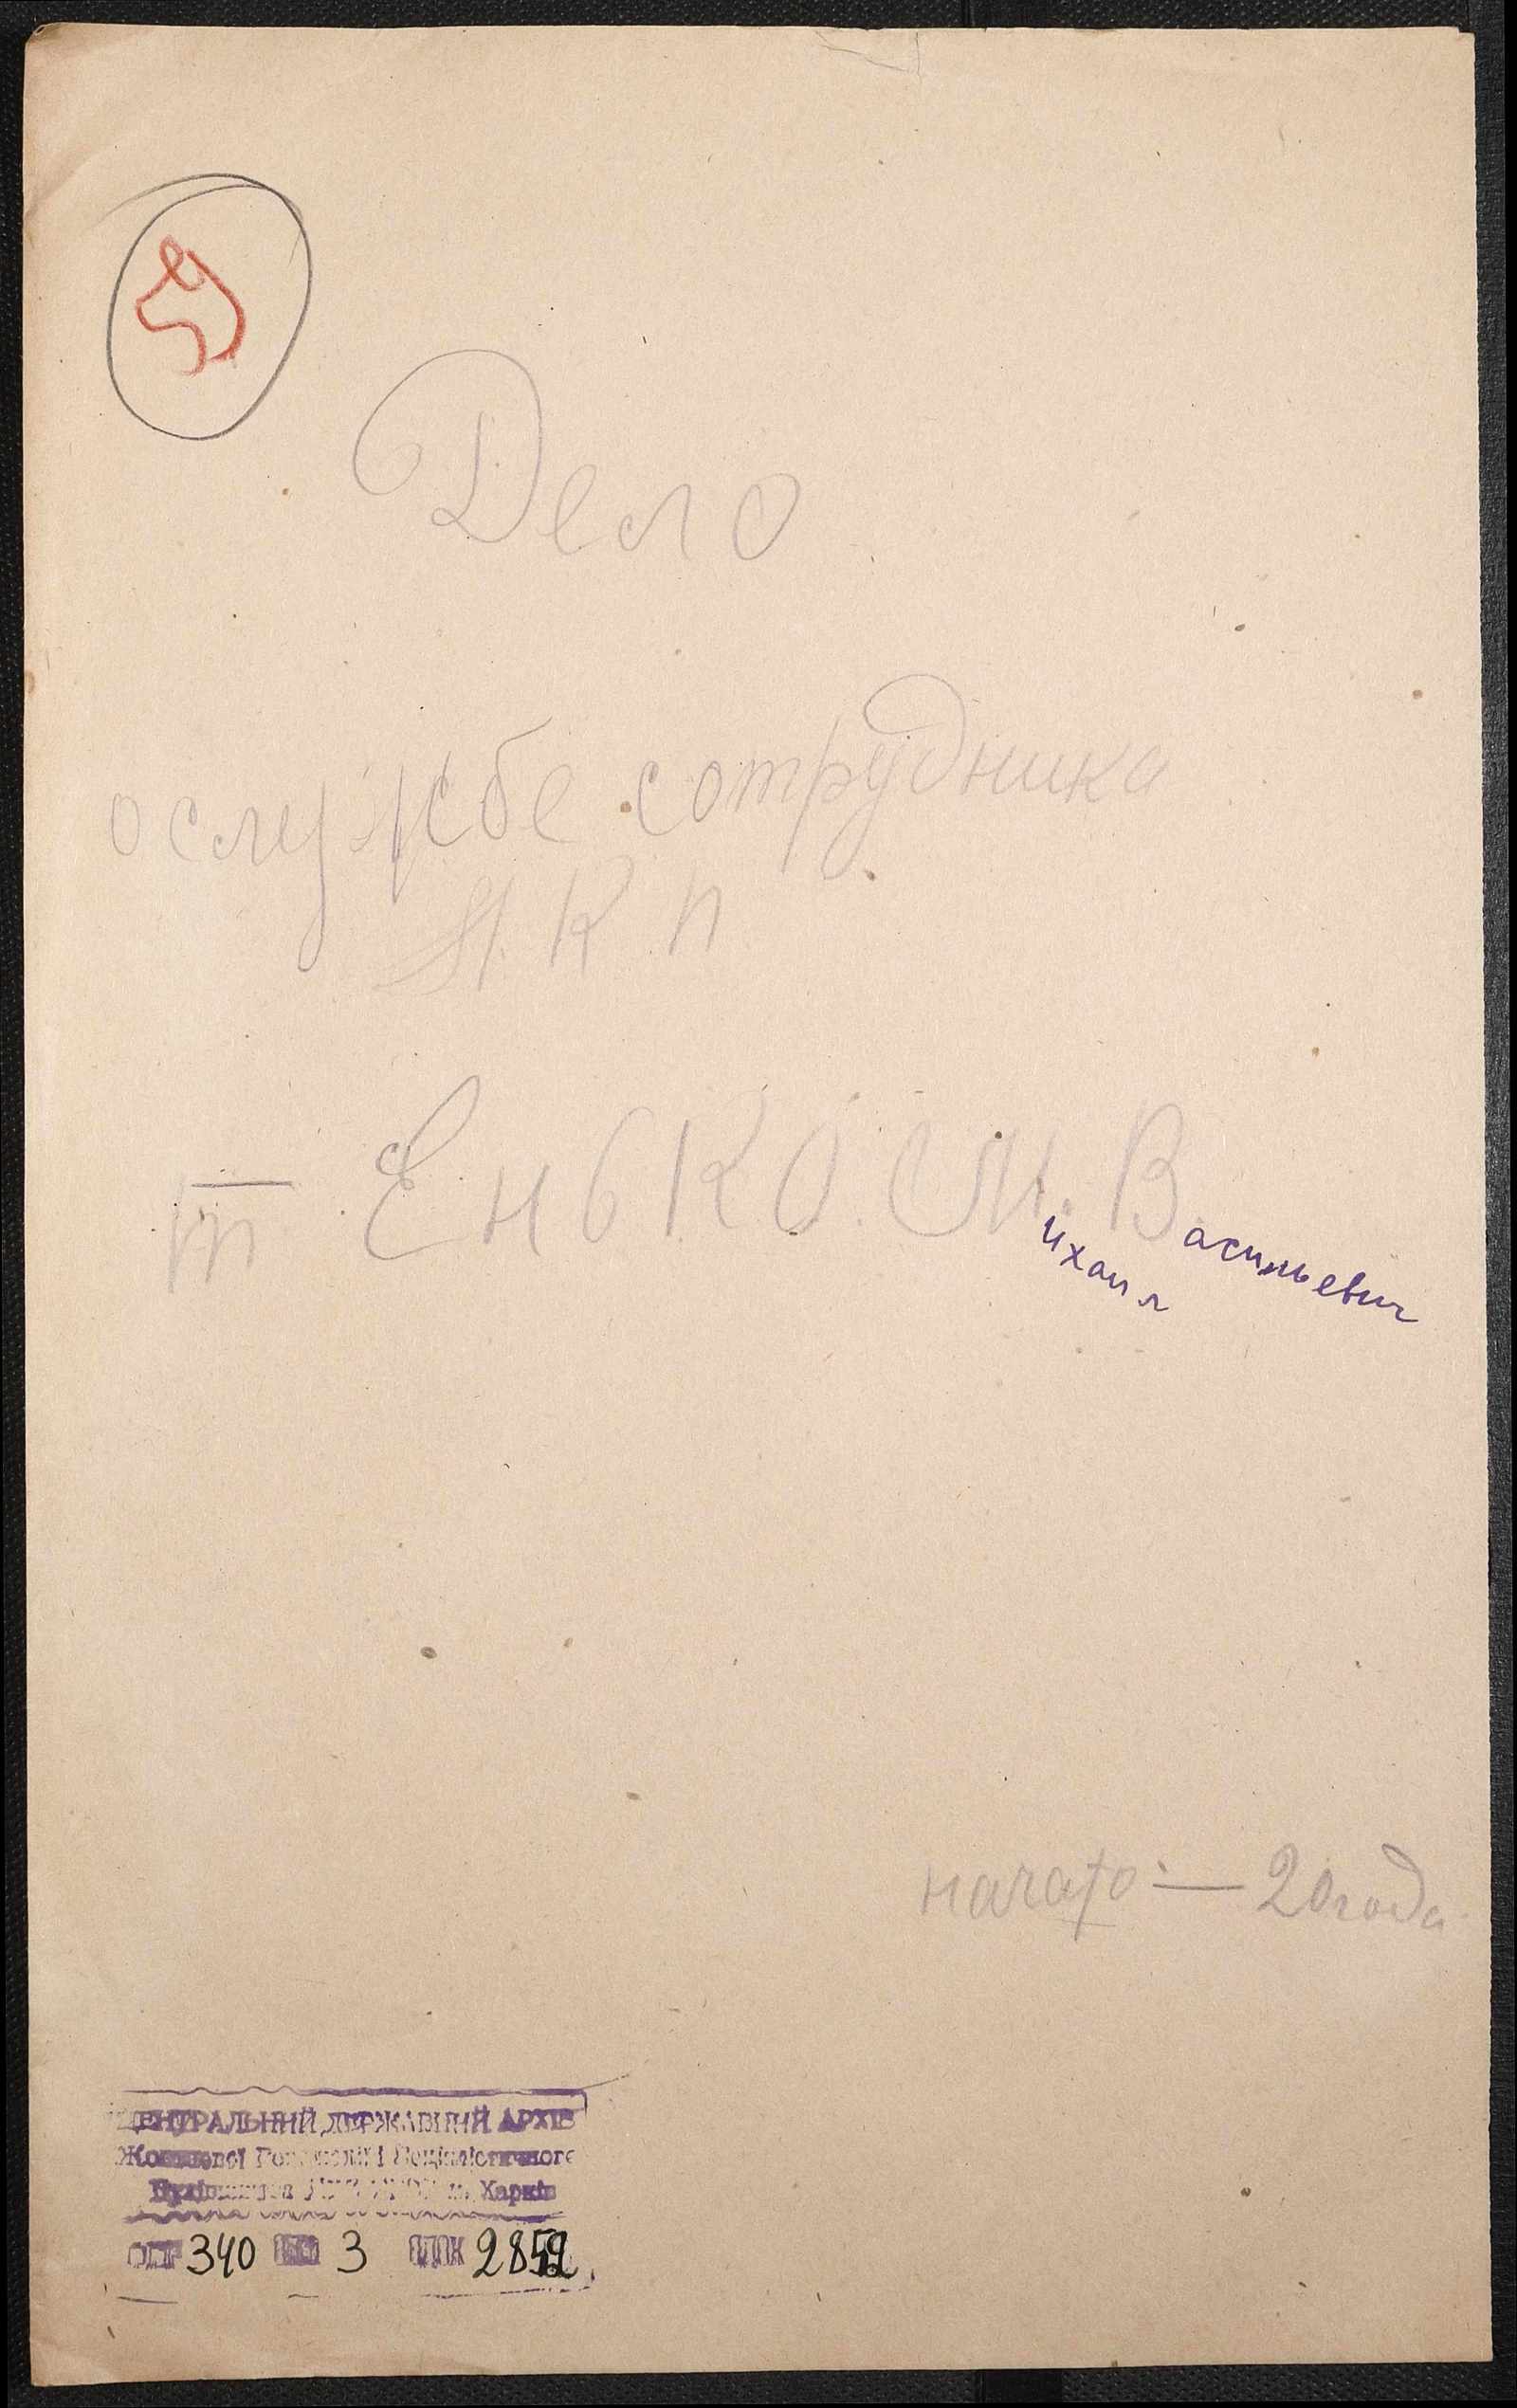 Дело
о службе сотрудника
Н. К. П.
т Енько М. В.
ихаил асильевич
начато — 20 года
ЦЕНТРАЛЬНИЙ ДЕРЖАВНИЙ АРХІВ
Жовтневої Революції і Соціалістичного
Будівництва м. Харків
ФОНД 340 3 2852